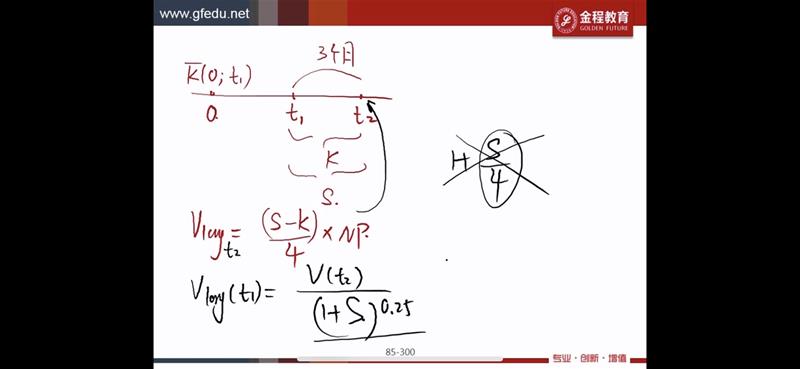 www.gfedu.net
金程教育
GOLDEN FUTURE
3个月
K(0; t₁)
0 t₁ t₂
K
S.
H S/4
V long t₂ = (S-K)/4 × NP.
V long (t₁) = V(t₂)/(1+S)^0.25
85-300
专业·创新·增值